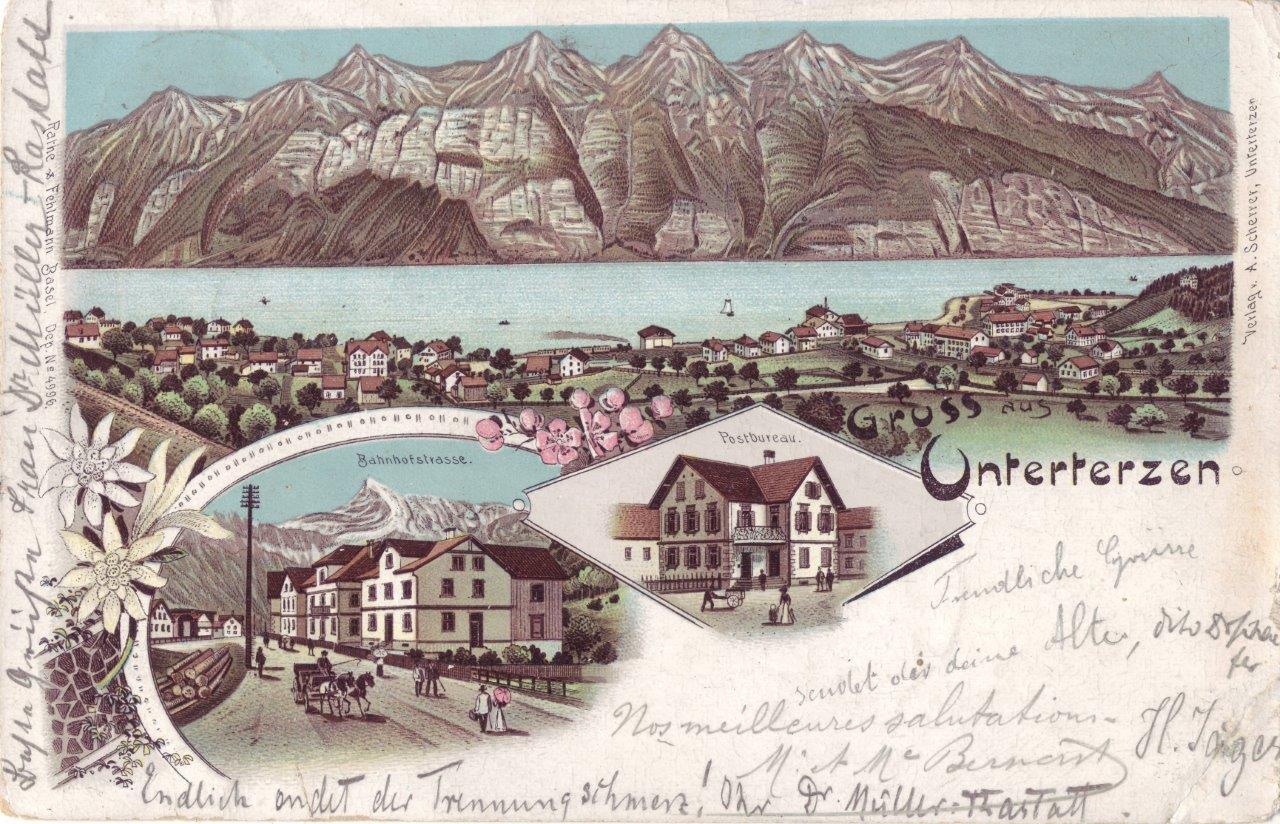 Gruss aus
Unterterzen
Postbureau.
Bahnhofstrasse.
Verlag v. A. Scherrer, Unterterzen
Rathe & Fehlmann Basel, Dep. No 4996
Freundliche Grüsse
sendet dir deine Alte, dito
Nos meilleures salutations
M. et Me
Endlich endet der Trennungschmerz! Ihr Dr. Müller-Rastatt.
Frau Dr Müller-Rastatt